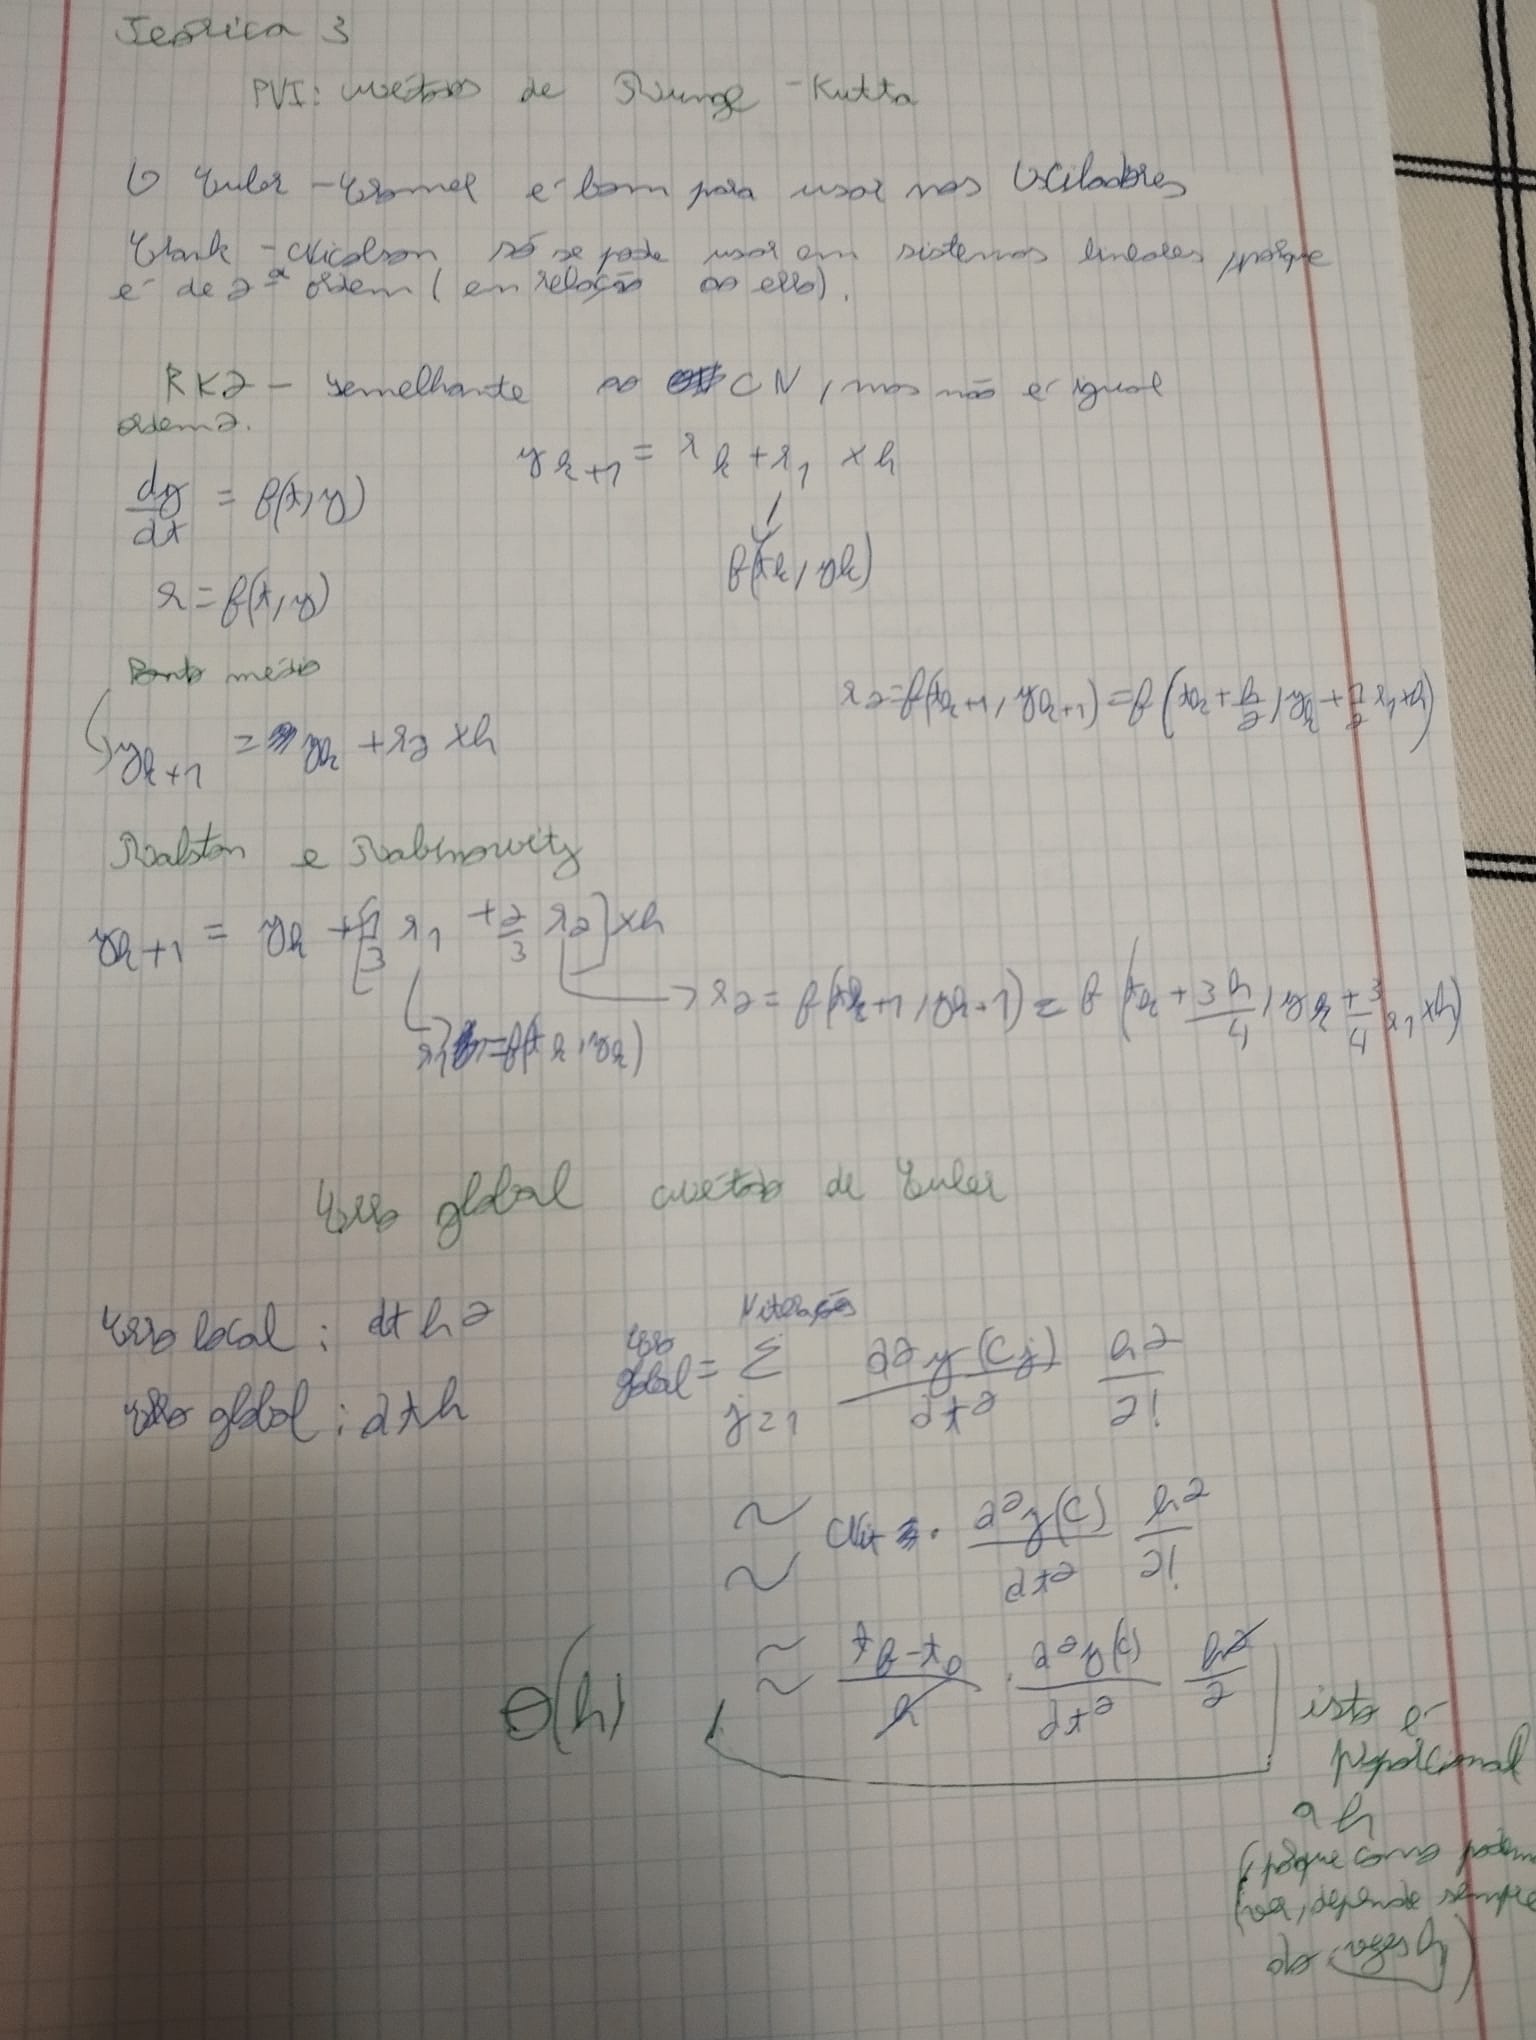 Teórica 3
PVI: Métodos de Runge-Kutta
O Euler-Cromer é bom para usar nos Osciladores
Crank-Nicolson só se pode usar em sistemas lineares, porque
é de 2ª ordem (em relação ao erro).
RK2 - semelhante ao CN, mas não é igual
ordem 2.
y_{k+1} = r_k + r_1 × h
dy/dt = f(t, y)
f(t_k, y_k)
r = f(t, y)
Ponto médio
r_2 = f(t_{k+1}, y_{k+1}) = f(t_k + h/2, y_k + 1/2 r_1 × h)
y_{k+1} = y_k + r_2 × h
Ralston e Rabinowitz
y_{k+1} = y_k + [1/3 r_1 + 2/3 r_2] × h
→ r_2 = f(t_{k+1}, y_{k+1}) = f(t_k + 3h/4, y_k + 3/4 r_1 × h)
→ r_1 = f(t_k, y_k)
Erro global Método de Euler
Erro local: dt h^2
Erro global: dt h
Erro global = Σ_{j=1}^{N iterações} d^2y(c_j)/dt^2 h^2/2!
≈ Nit · d^2y(c)/dt^2 h^2/2!
≈ (t_f - t_0)/h · d^2y(c)/dt^2 h^2/2
O(h)
isto é
proporcional
a h
(porque como podemos
ver, depende sempre
do vezes h)